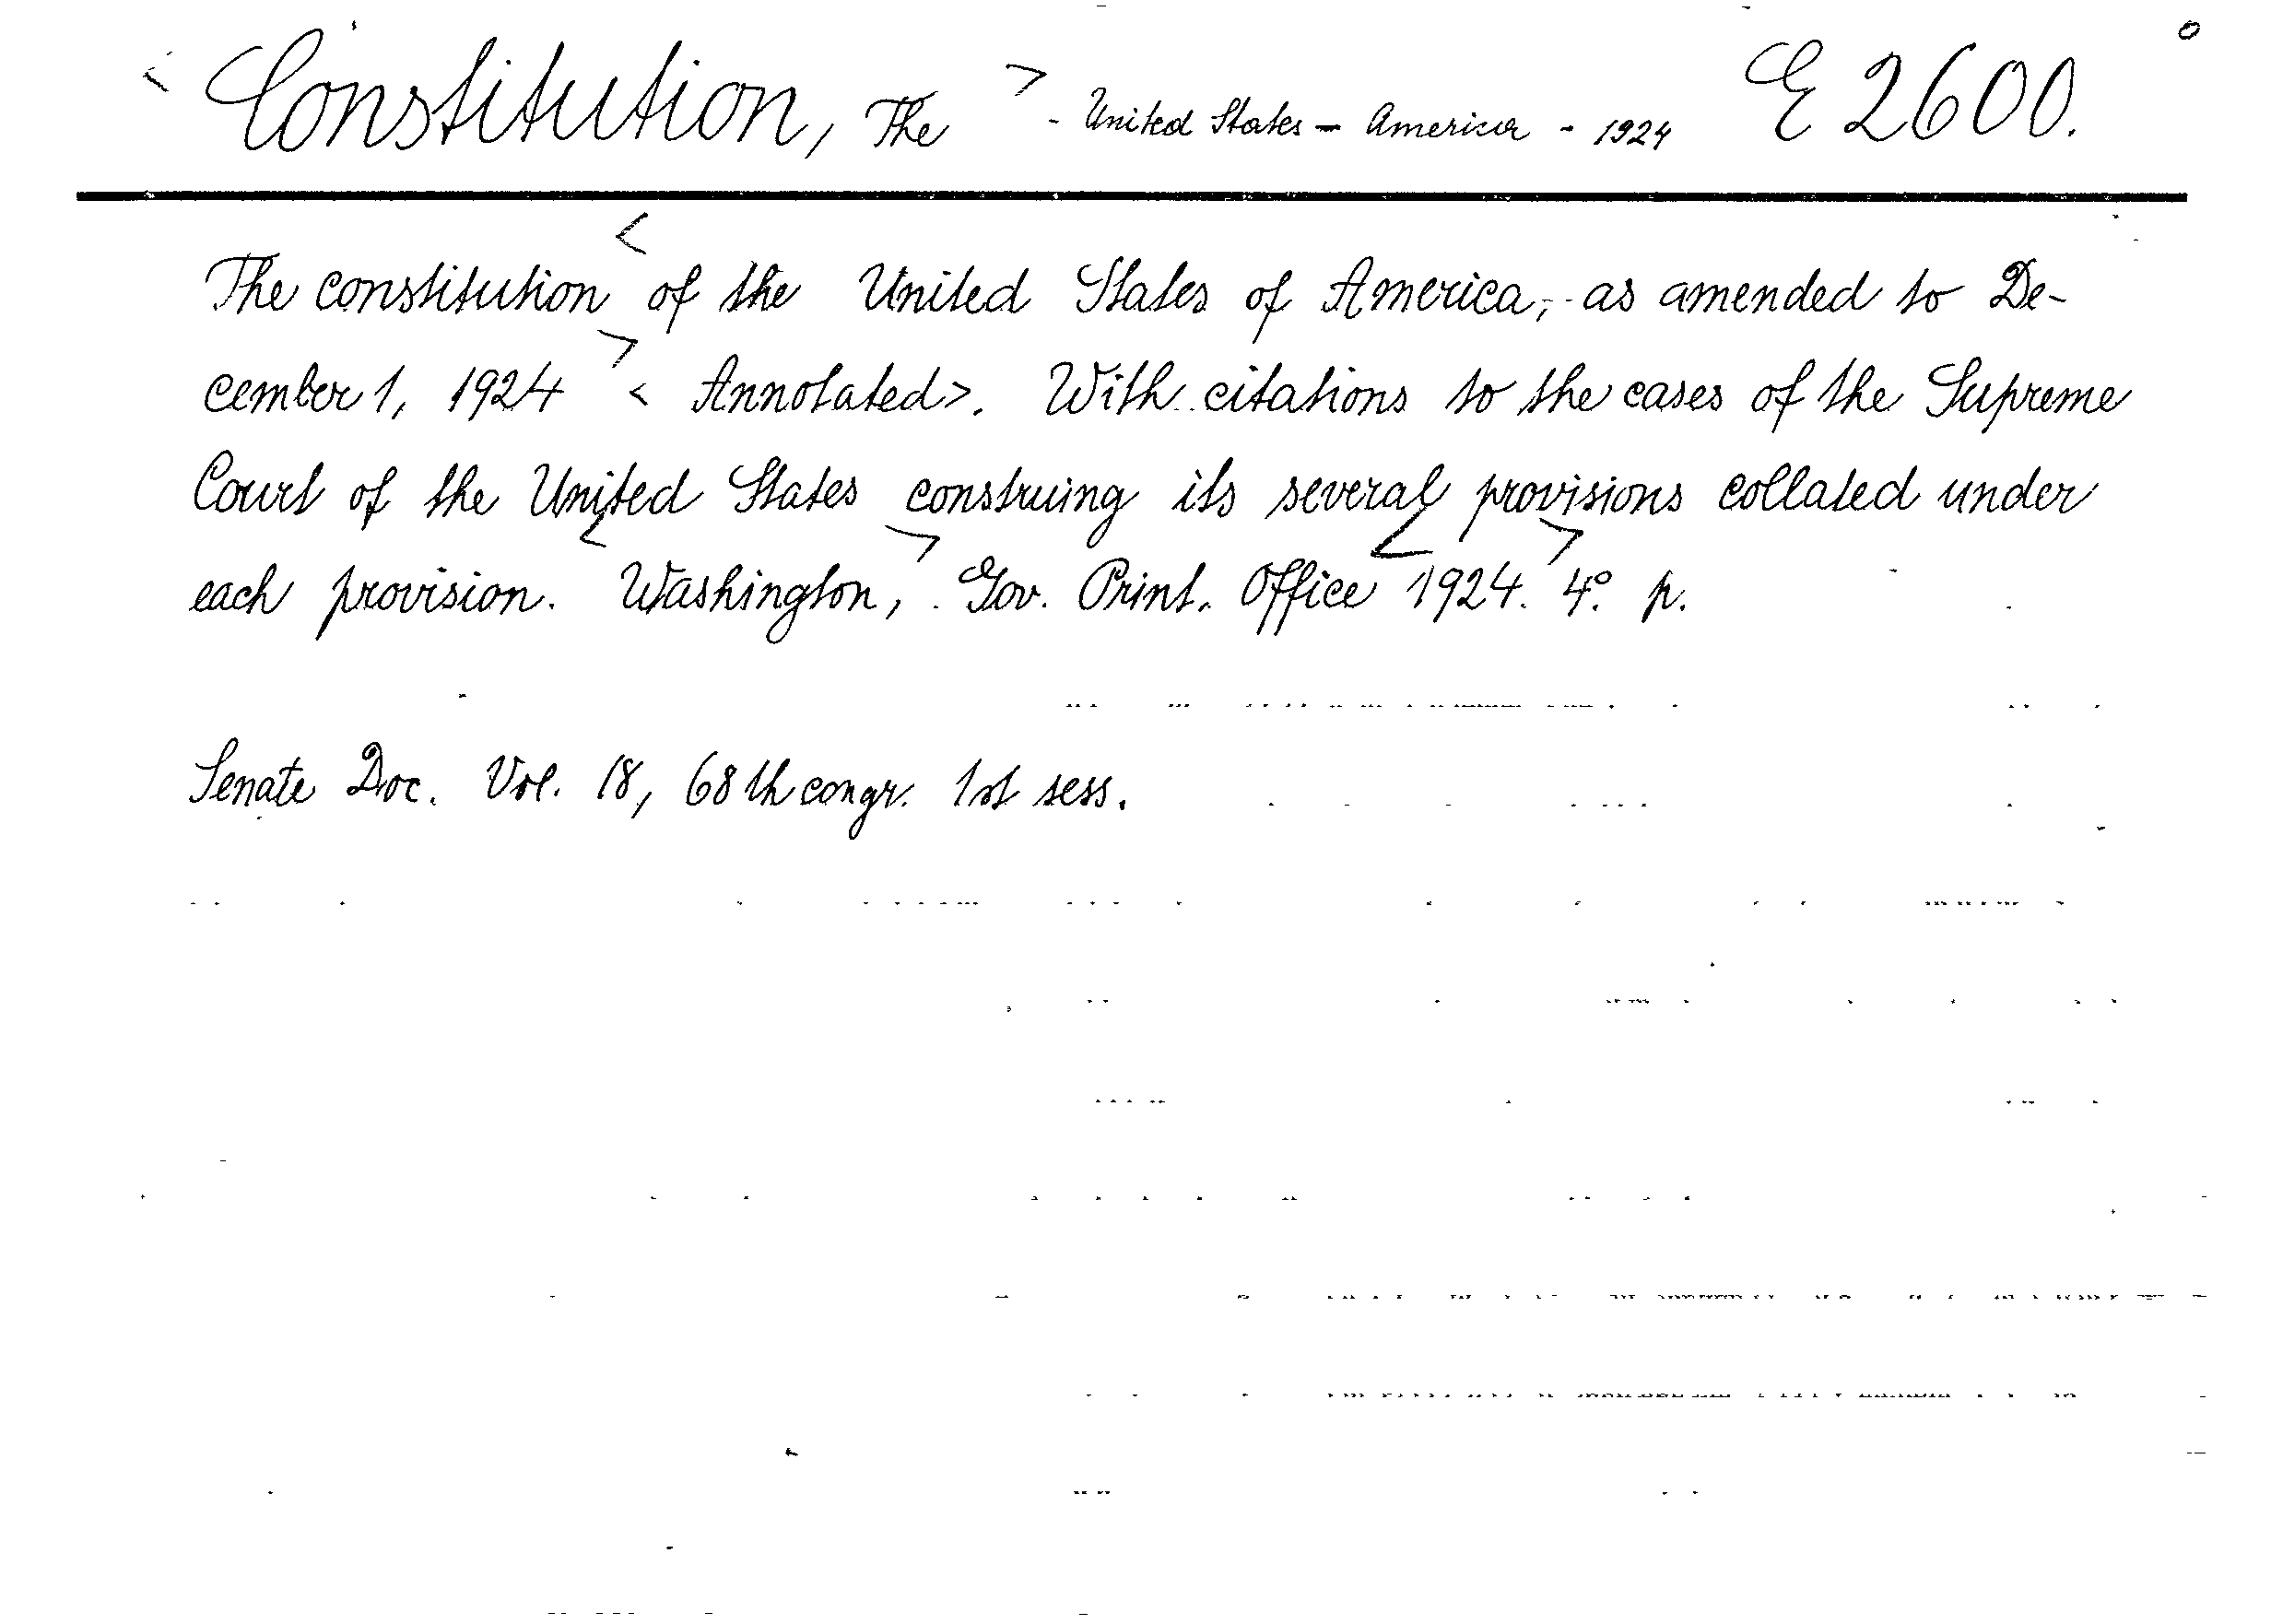 < Constitution, The > - United States - America - 1924 E 2600.
The constitution < of the United States of America, as amended to De-
cember 1, 1924 > < Annotated>. With citations to the cases of the Supreme
Court of the United States construing its several provisions collated under
each provision. < Washington, > Gov. Print. Office < 1924. > 4° p.
Senate Doc. Vol. 18, 68th congr. 1st sess.